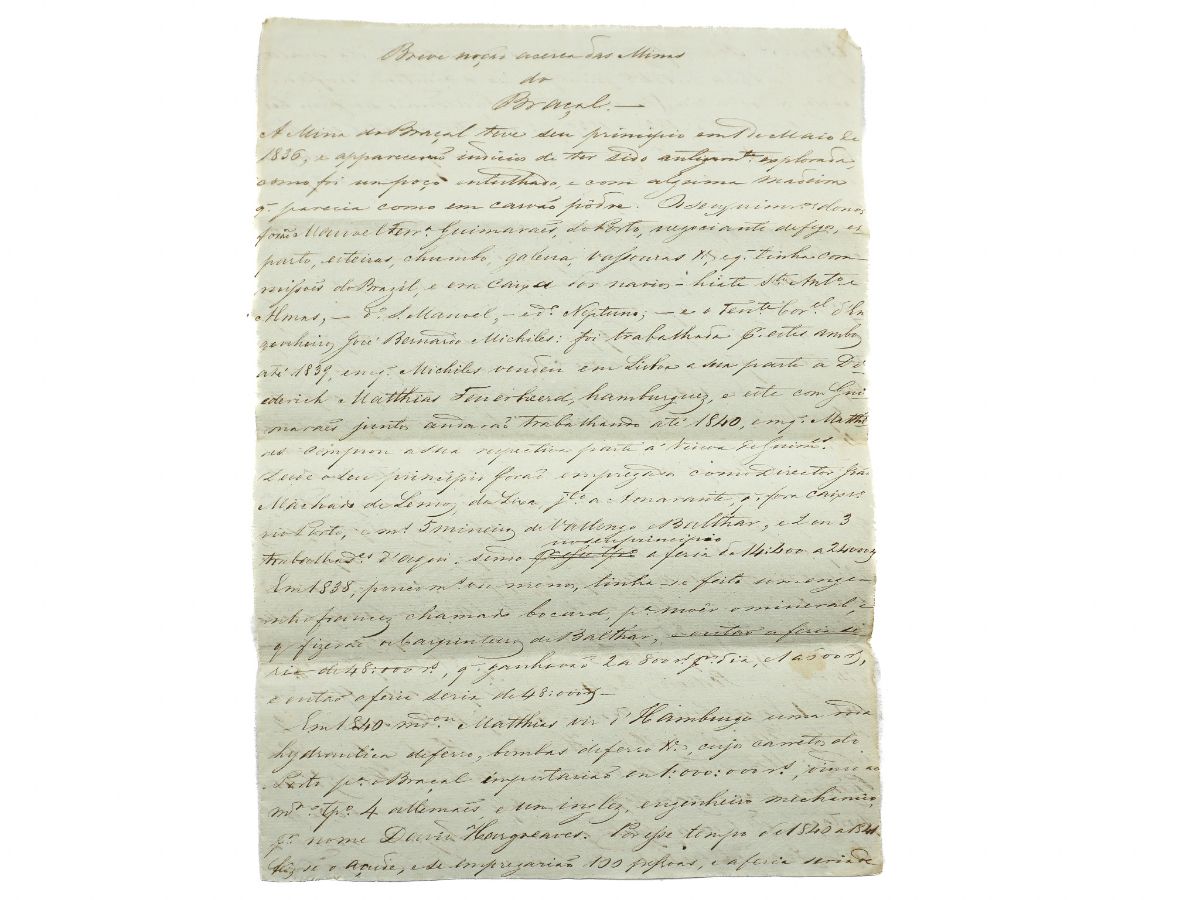 Breve noção acerca das Minas
do
Braçal. —
A Mina do Braçal teve seu principio em 1 de Maio de
1836, e apparecerão indicios de ter sido antigamte. explorada,
como foi um poço entulhado, e com alguma madeira
q. parecia como em carvão pôdre. Os seus primros. donos
forão Manoel Ferra. Guimaraës, do Porto, negociante de figo, es-
parto, esteiras, chumbo, galena, vassouras &c., e q. tinha com-
missoës do Brazil, e era caixa dos navios - hiate Sto. Anto. e
Almas, — do. S. Manoel, — e do. Neptuno; — e o Tente. Corel. d'En-
genheiros José Bernardo Michiles: foi trabalhada pr. estes ambos
até 1839, em q. Michiles vendeu em Lisboa a sua parte a Di-
ederich Mathias Feuerheerd, hamburguez, e este com Gui-
maraës juntos andarão trabalhando até 1840, em q. Mathi-
as comprou a sua respectiva parte á Viuva de Guims.
Desde o seu principio forão empregados como Director
Machado de Lemos, da Lixa, jto. a Amarante, q. fora caixei-
ro no Porto, e ms. 5 mineiros de Vallongo e Balthar, e 2 ou 3
trabalhadres. d'aqui, sendo no seu principio a feria de 14:400 a 24000
Em 1838, pouco ms. ou menos, tinha-se feito um enge-
nho francez chamado bocard, pa. moêr o mineral, e
q. fizerão os Carpinteiros de Balthar, — e então a feria se-
ria de 48:000 rs., q. ganhavão 2 a 800 rs. pr. dia, e 1 a 600 rs,
e então a feria seria de 48:000 rs —
Em 1840 mdou. Mathias vir d'Hamburgo uma roda
hydraulica de ferro, bombas de ferro &c., cujos carretos do
Porto pa. o Braçal importarião em 1:000:000 rs., vindo ao
mo. tpo. 4 allemaës, e um inglez, engenheiro mechanico,
pr. nome David Hargreaves. Por esse tempo de 1840 a 1841
fez-se o açude, e se empregarião 100 pessoas, e a feria seria de